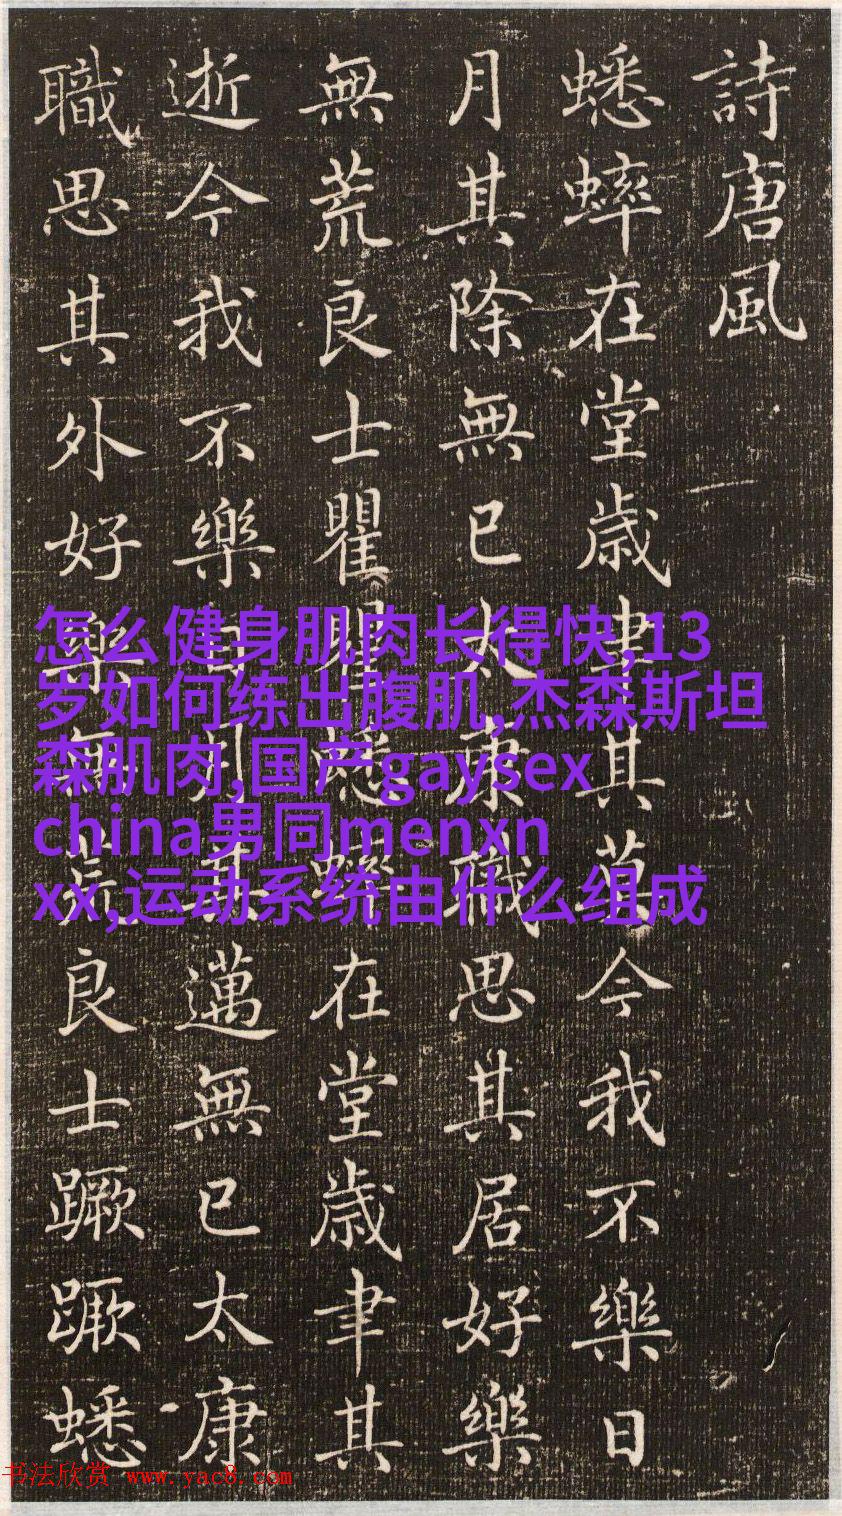 詩唐風
蟋蟀在堂歳聿其莫今我不樂日
月其除無已太康職思其居好樂
無荒良士瞿瞿蟋蟀在堂歳聿其
逝今我不樂日月其邁無已太康
職思其外好樂無荒良士蹶蹶蟋
怎么健身肌肉长得快,13
岁如何练出腹肌,杰森斯坦
森肌肉,国产gaysex
china男同menxn
xx,运动系统由什么组成
书法欣赏 www.yac8.com